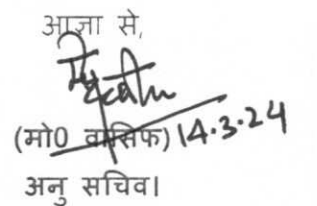 आज्ञा से,
(मो0 वासिफ) 14.3.24
अनु सचिव।